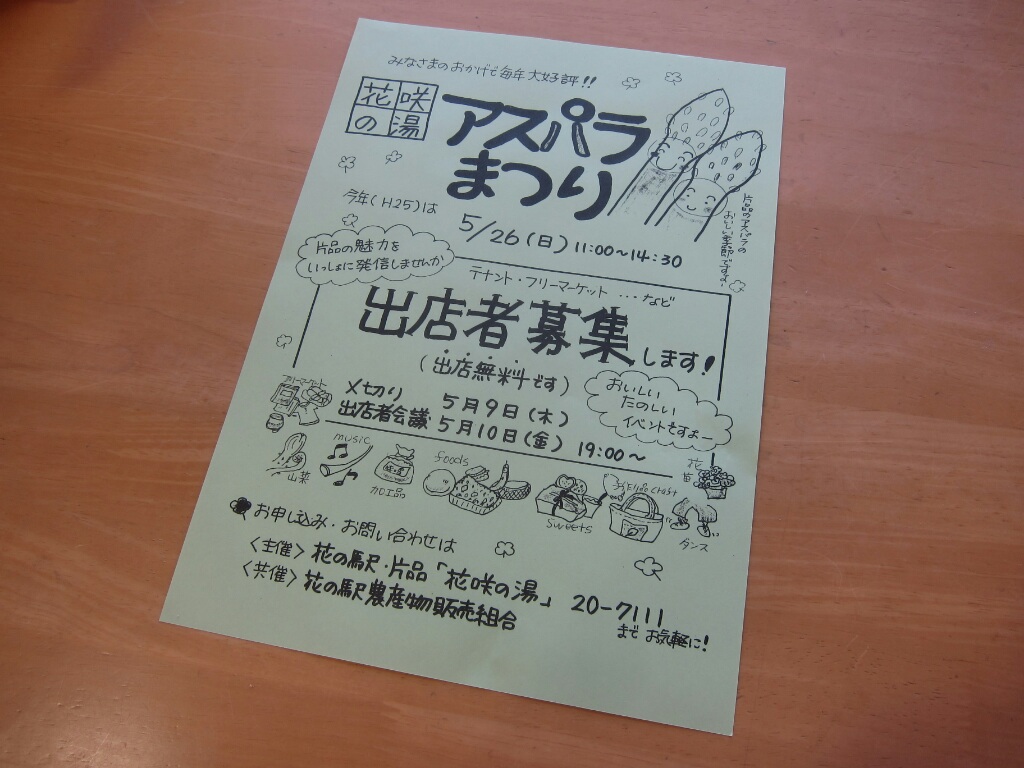 みなさまのおかげで毎年大好評!!
花咲
の湯
アスパラ
まつり
片品のアスパラの
おいしい季節です♪
今年(H25)は
5/26(日)11:00〜14:30
片品の魅力を
いっしょに発信しませんか
テナント・フリーマーケット...など
出店者募集します!
(出店無料です)
〆切り 5月9日(木)
出店者会議 5月10日(金) 19:00〜
おいしい
たのしい
イベントですよー
フリーマーケット
山菜
music
加工品
foods
sweets
craft
花苗
ダンス
お申し込み・お問い合わせは
〈主催〉花の駅・片品「花咲の湯」 20-7111
〈共催〉花の駅農産物販売組合
まで お気軽に!